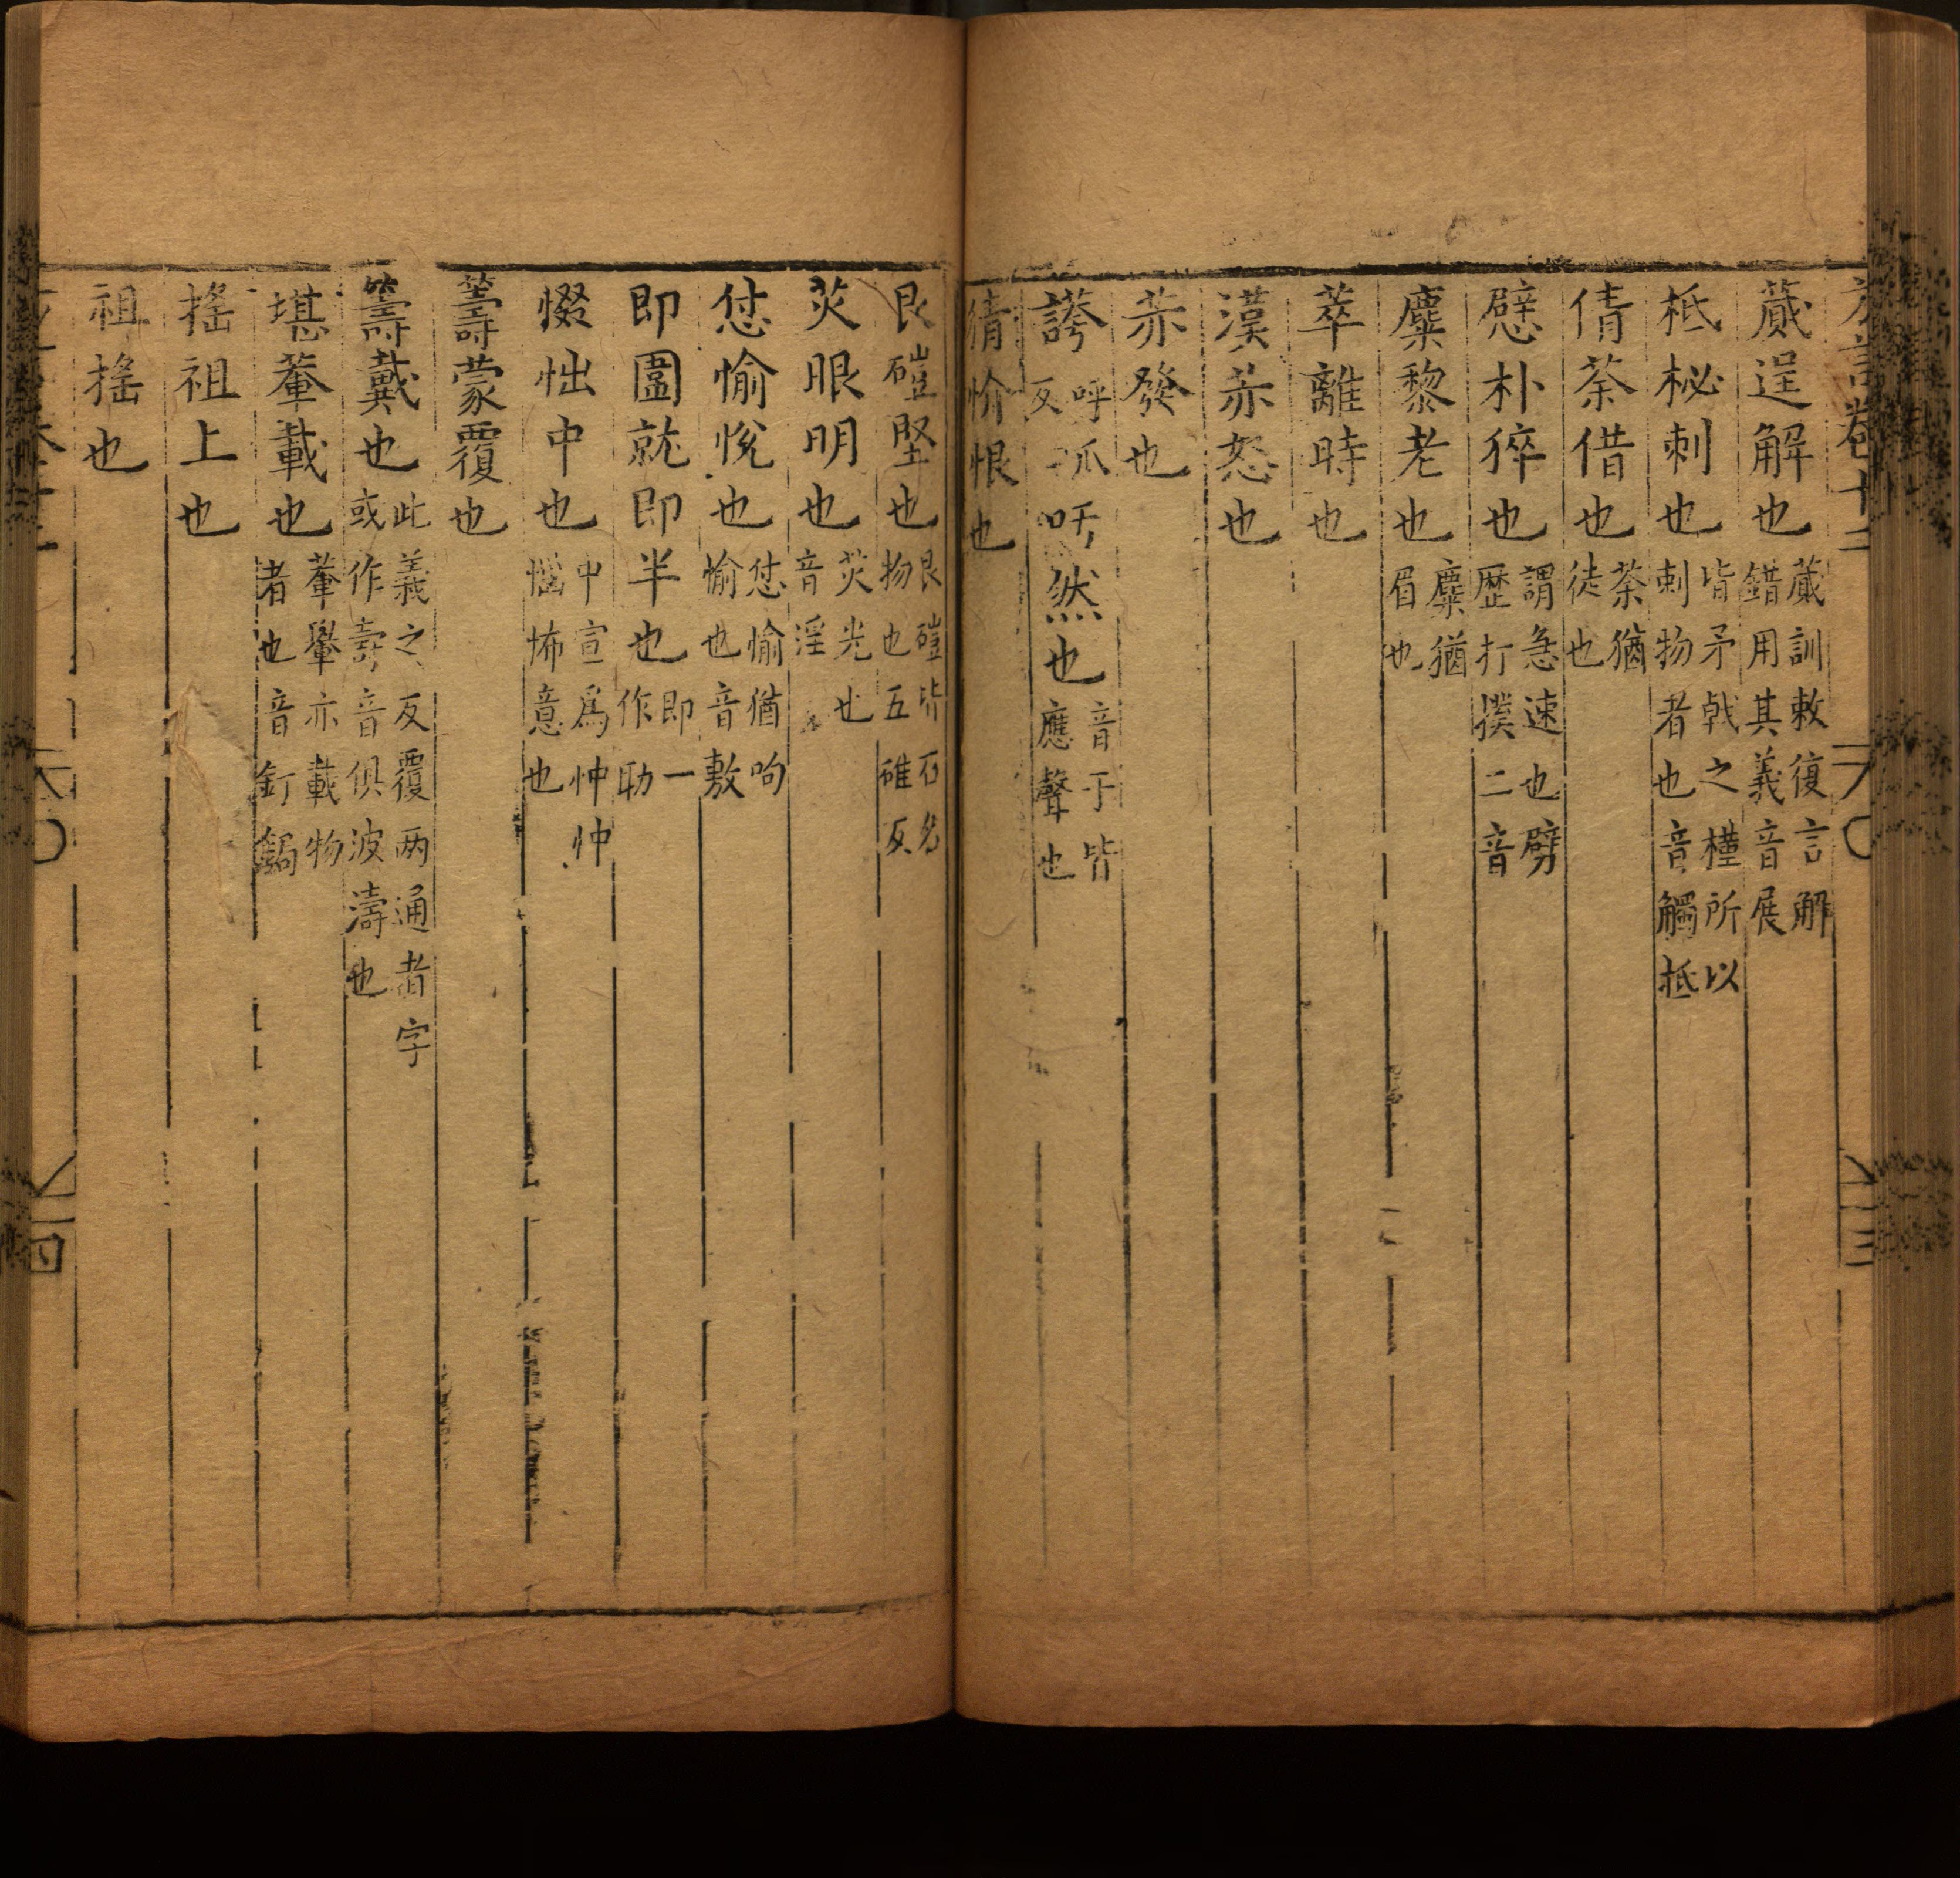 方言卷十二
蕆逞解也蕆訓敕復言解錯用其義音展
柢柲刺也皆矛戟之槿所以刺物者也音觸抵
倩荼借也荼猶徒也
憵朴猝也謂急速也劈歷打撲二音
麋黎老也麋猶眉也
萃離時也
漢赤怒也
赤發也
誇呼瓜反吁然也音于皆應聲也
猜恨也
艮磑堅也艮磑皆石名物也五碓反
炗眼明也炗光也音淫
怤愉悅也怤愉猶呴愉也音敷
即圍就即半也即一作助
惙怞中也中宣爲忡忡惱怖意也
䈙蒙覆也
䈙戴也此義之反覆两通者字或作燾音俱波濤也
堪輂載也輂轝亦載物者也音釘鋦
搖祖上也
祖搖也